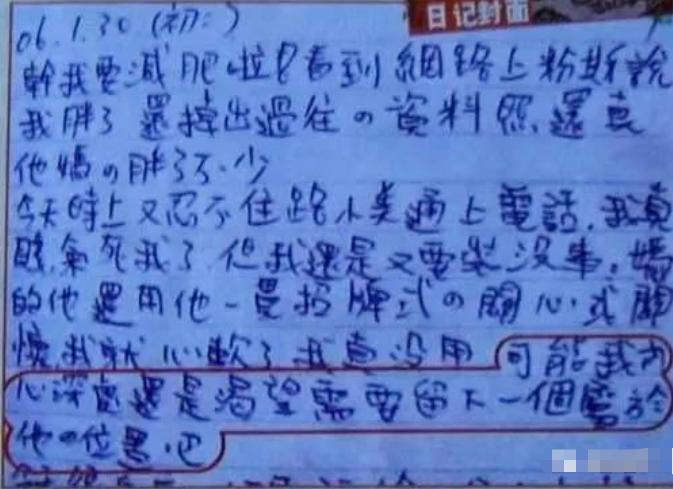 日记封面
06.1.30 (初二)
幹我要減肥啦!看到網路上粉斯說
我胖了還擇出過往の資料照,還真
他媽の胖了不少
今天晚上又忍不住跟小美通上電話,我真
氣死我了,但我還是又要裝沒事,媽
的他還用他一貫招牌式の關心,或關
懷,我就心軟了我真沒用可能我內
心深處還是渴望需要留下一個屬於
他の位置吧